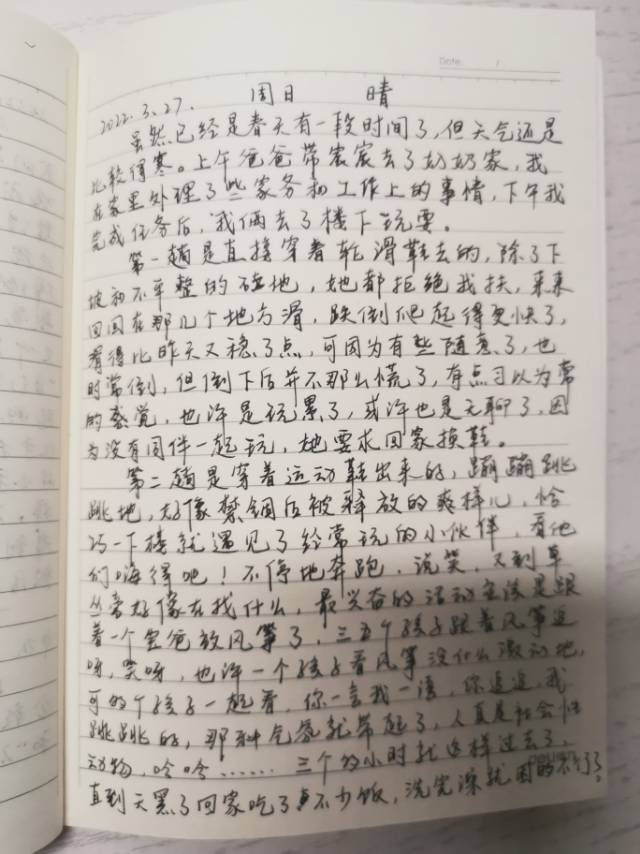 Date. /
2022.3.27. 周日 晴
虽然已经是春天有一段时间了,但天气还是
比较得寒。上午爸爸带宸宸去了奶奶家,我
在家里处理了些家务和工作上的事情,下午我
完成任务后,我俩去了楼下玩耍。
第一趟是直接穿着轮滑鞋去的,除了下
坡和不平整的砖地,她都拒绝我扶,来来
回回在那几个地方滑,跌倒爬起得更快了,
看得比昨天又稳了点,可因为有些随意了,也
时常倒,但倒下后并不那么慌了,有点习以为常
的感觉,也许是玩累了,或许也是无聊了,因
为没有同伴一起玩,她要求回家换鞋。
第二趟是穿着运动鞋出来的,蹦蹦跳
跳地,好像禁锢后被释放的爽样儿,恰
巧一下楼就遇见了经常玩的小伙伴,看他
们嗨得吧!不停地奔跑,说笑,又到草
丛旁好像在找什么,最兴奋的活动应该是跟
着一个宝爸放风筝了,三五个孩子跟着风筝追
呀,笑呀,也许一个孩子看风筝没什么激动地,
可四个孩子一起看,你一言我一语,你追追,我
跳跳的,那种气氛就带起了,人真是社会性
动物,哈哈……三个多小时就这样过去了,
直到天黑了回家吃了不少饭,洗完澡就困的不行了。